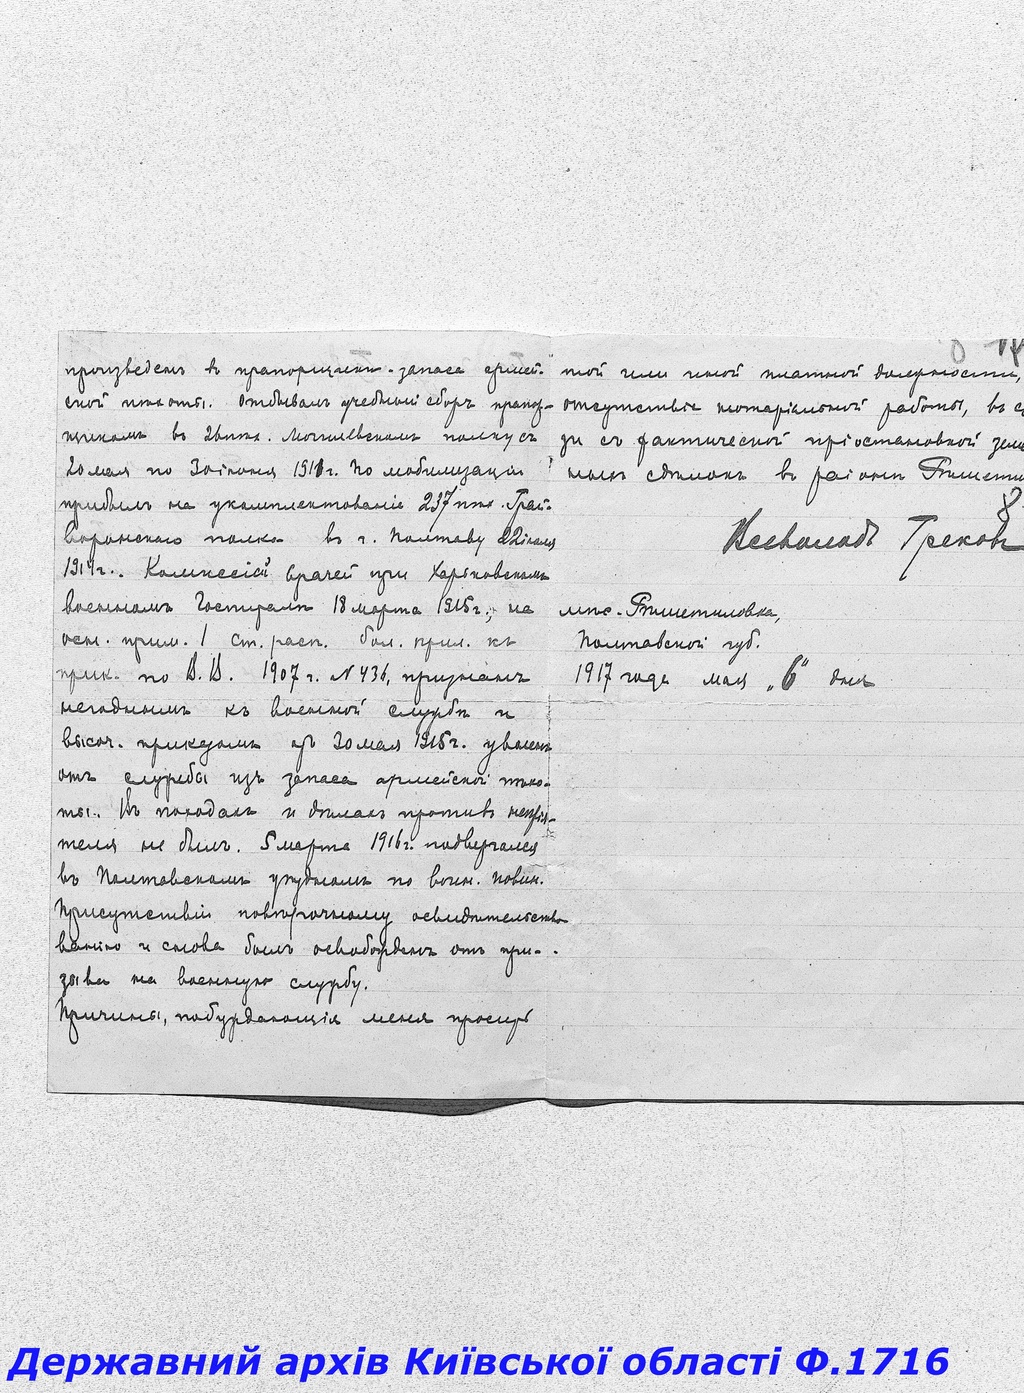 произведенъ въ прапорщики запаса армей-
ской пѣхоты. Отбывалъ учебный сборъ прапор-
щикомъ въ пѣх. Могилевскомъ полку съ
20 мая по 30 іюня 191 г. По мобилизаціи
прибылъ на укомплектованіе 237 пѣх. Грай-
воронскаго полка въ г. Полтаву 22 іюля
1914 г. Комиссіей врачей при Харьковскомъ
военномъ Госпиталѣ 18 марта 1915 г., на
осн. прим. 1 ст. расп. бол. прил. къ
прик. по В. В. 1907 г. № 436, признанъ
негоднымъ къ военной службѣ и
высоч. приказомъ отъ 30 мая 1915 г. уволенъ
отъ службы изъ запаса армейской пѣхо-
ты. Въ походахъ и дѣлахъ противъ непрія-
теля не былъ. 5 марта 1916 г. подвергался
въ Полтавскомъ уѣздномъ по воин. повин.
Присутствіи повторному освидѣтельство-
ванію и снова былъ освобожденъ отъ при-
зыва на военную службу.
Причины, побуждающія меня просить
той или иной платной должности,
отсутствіе нотаріальной работы, въ с
ди съ фактической пріостановкой земе
ныхъ сдѣлокъ въ районѣ Рѣшети
8
Всеволодъ Грековъ
мѣс. Рѣшетиловка,
Полтавской губ.
1917 года мая „6" дня
Державний архів Київської області Ф.1716